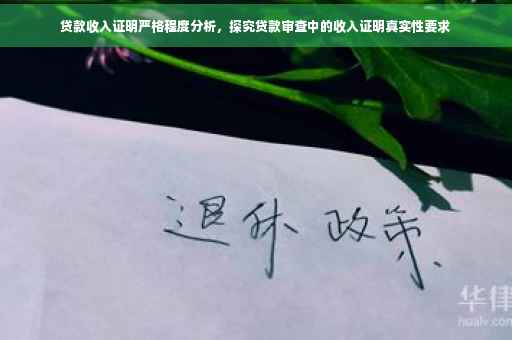 贷款收入证明严格程度分析，探究贷款审查中的收入证明真实性要求
退休 政策
华律
hualv.com